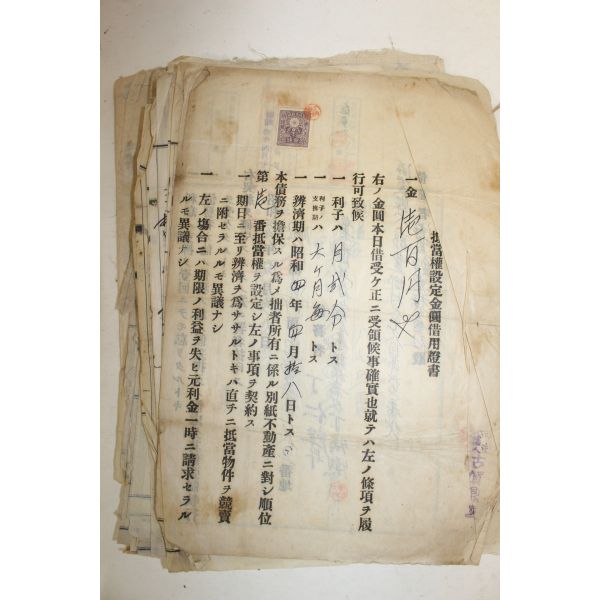 抵當權設定金圓借用證書
一金壱百円也
右ノ金圓本日借受ケ正ニ受領候事確實也就テハ左ノ條項ヲ履
行可致候
一利子ハ月弐分トス
一利子ノ支拂期ハ六ヶ月毎トス
一辨濟期ハ昭和四年四月拾八日トス
本債務ヲ擔保スル爲メ拙者所有ニ係ル別紙不動產ニ對シ順位
第壱番抵當權ヲ設定シ左ノ事項ヲ契約ス
一期日ニ至リ辨濟ヲ爲サザルトキハ直チニ抵當物件ヲ競賣
ニ附セラルルモ異議ナシ
一左ノ塲合ニハ期限ノ利益ヲ失ヒ元利金一時ニ請求セラル
ルモ異議ナシ